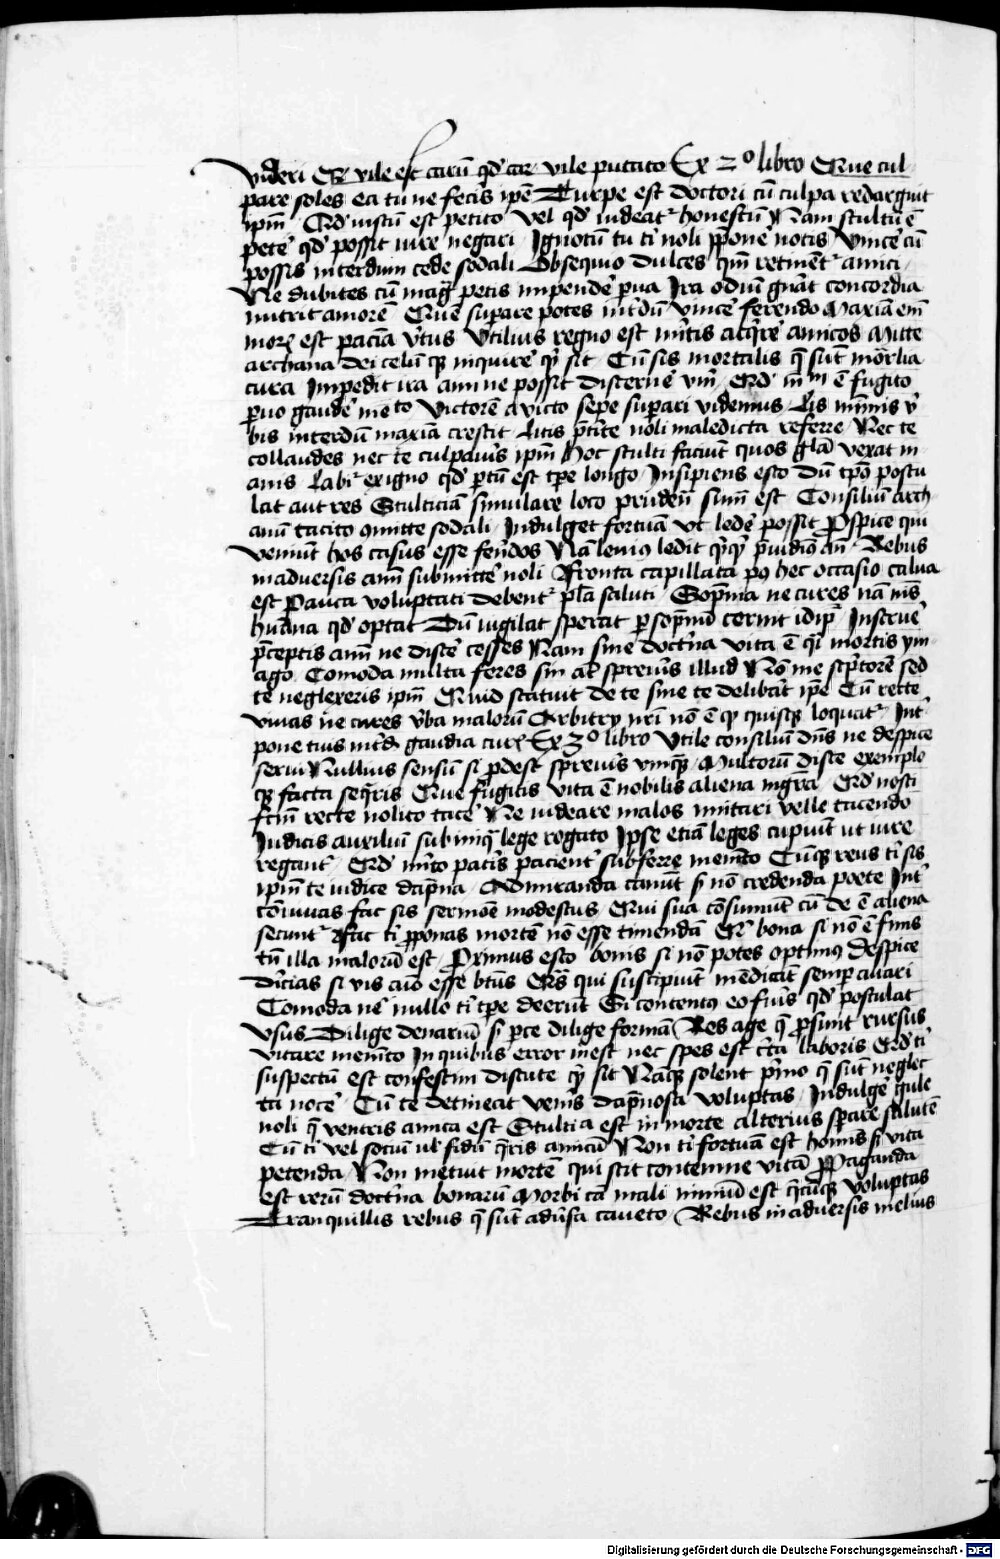 videri Qd vile est carū qd car vile putato Ex 2º libro Que cul
pare soles ea tu ne fecis ip̄e Turpe est doctori cū culpa redarguit
ipm̄ Qd iustū est petito vel qd videat͛ honestū Nam stultū ē
pete͛ qd possit iure negari Ignotū tu ti noli p̄pone͛ notis Vince͛ cū
possis interdum cede sodali Obsequio dulces qm̄ retinēt͛ amici
Ne dubites cū maḡ petis impende͛ p̱ua Ira odiū gn̄at concordia
nutrit amorē Quē supare potes int͛dū vince͛ ferendo Maxīa em̄
mor͛ est paciā v͛tus Utilius regno est mitis acq̄re͛ amicos Mitte
archana dei celū qꝫ inquire͛ qͥ sit Cū sis mortalis q̄ sūt mōrlia
cura Impedit ira anī ne possit discerne͛ vm̄ Qd nīm ē fugito
p̱uo gaude͛ me͛to Victorē a victo sepe supari videmus Lis mīmis v͛
bis interdū maxīa crescit Litis p̄t͛ite noli maledicta referre Nec te
collaudes nec te culpaūis ipm̄ Hoc stulti faciūt quos gl̄a vexat in
anis Labit͛ exiguo qd p̱tū est tp̄e longo Insipiens esto dū tp̄ꝰ postu
lat aut res Stulticiā simulare loco prudēn sum̄ est Consiliū arch
anū tacito ꝯmitte sodali Indulget fortuā vt lede͛ possit Prospice qui
veniūt hos casus esse ferēdos Nā leuiꝰ ledit qͥqͥ p̄uidiꝰ an͛ Rebus
in aduersis anīm submitte͛ noli Fronta capillata pꝰ hec occasio calua
est Pauca voluptati debent͛ pl̄a saluti Sop̄nia ne cures nā mēs
hūana qd optat Dū iugilat sperat p̱ sop̄niū cernit idip̄ Instrue͛
p̄ceptis anīm ne disce͛ cesses Nam sine doctͥna vita ē qͥ mortis ym
ago Comoda multa feres sin at͛ spreuis illud Nō me sc͛ptorē sed
te neglexeris ipm̄ Quid statuit de te sine te delibat ip̄e Cū recte
viuas ne cures v͛ba malorū Arbitry nr̄i nō ē qͥ quisqꝫ loquat͛ Int͛
pone tuis int͛dū gaudia cur͛ Ex 3º libro Utile consiliū dn̄s ne despice
serui Nullius sensū si p̱dest spreuis vnqꝫ Multorū disce exemplo
qꝫ facta seq̄ris Que fugitis vita ē nobilis aliena mgr̄a Qd nosti
fcm̄ recte nolito tace͛ Ne videare malos imitari velle tacendo
Iudicis auxiliū sub iniqͣ lege rogato Ipse etiā leges cupiūt ut iure
regant͛ Qd me͛to patis pacient͛ subferre memēto Cūqꝫ reus ti sis
ipm̄ te iudice dāpna Admiranda canūt sꝫ nō credenda poete Int͛
cōuiuas fac sis sermoē modestus Qui sua cōsumūt cū de ē aliena
secunt͛ Fac ti p̱ponas mortē nō esse timendā Qͥ bona si nō ē finis
tn̄ illa malorū est Proximus esto bonis si nō potes optimus Despice
diͥcias si vis aīo esse bt͛us Qͣs qui suscipiūt mēdicāt semper auari
Comoda ne͛ nullo ti tp̄e deerūt Si contentꝰ eo fuis qd postulat
usus Dilige denariū sꝫ p̱ce dilige formā Res age q̄ p̱sunt rursus
vitare memēto In quibus error inest nec spes est c͛ta laboris Qd ti
suspectū est confestim discute qͥ sit Naqꝫ solent pͥmo q̄ sūt neglec
ta noce͛ Cū te detineat venis dāpnosa voluptas Indulge͛ gule
noli q̄ ventris amica est Stultia est in morte alterius sp̱are salutē
Cū ti vel sociū ul͛ fidū q̄ris amicū Non ti fortuā est homīs sꝫ vita
petenda Non metuit mortē qui scit contemne vitā Propaganda
est rerū doctͥna bonarū Morbi cā mali nimiū est q̄cūqꝫ voluptas
Tranquillis rebus q̄ sūt adūsa caueto Rebus in aduersis melius
Digitalisierung gefördert durch die Deutsche Forschungsgemeinschaft - DFG